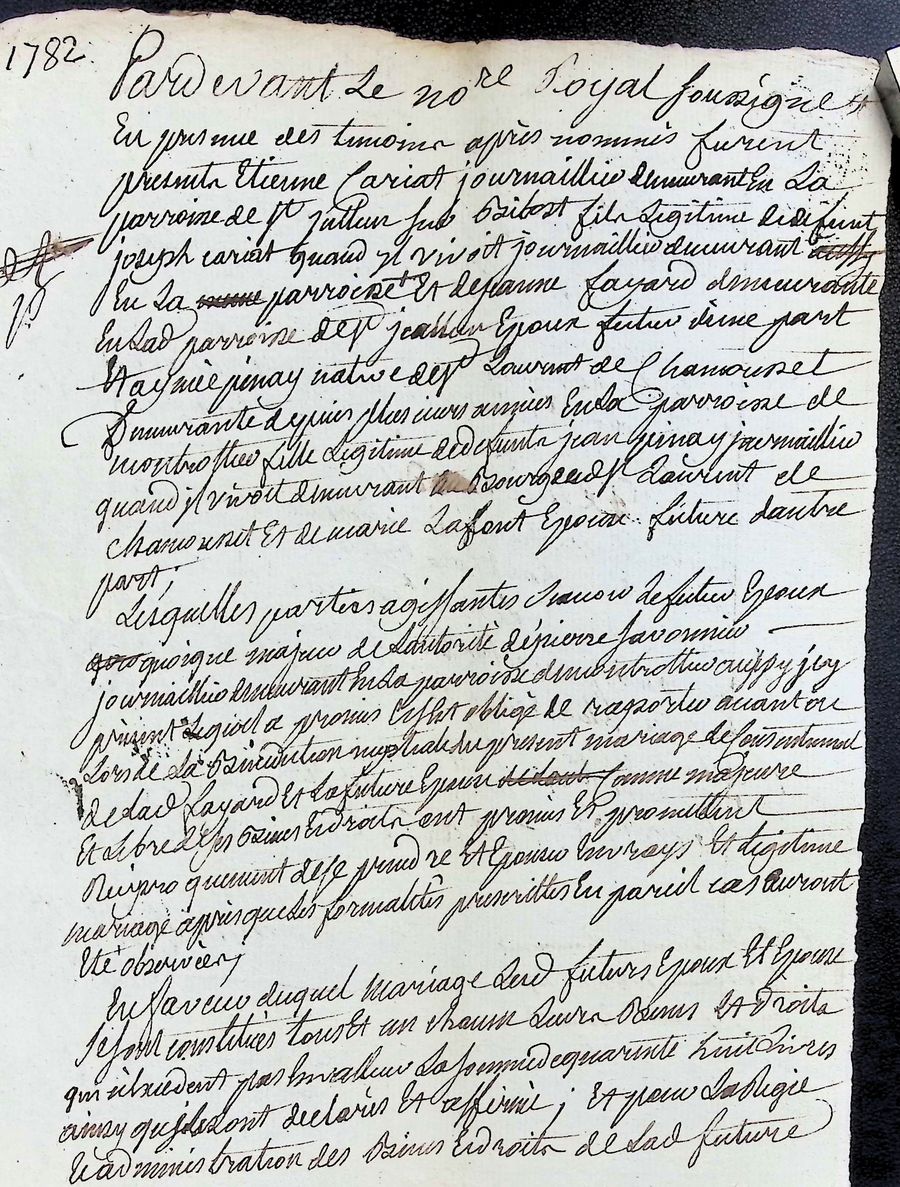 1782
Pardevant Le no.re Royal soussigné Et
En presence des temoins après nommés furent
presents Etienne Cariat journaillier demeurant En La
parroisse de St jullien sur Bibost fils Legitime de defunt
joseph cariat quand il vivoit journaillier demeurant aussy
En La meme parroisse Et de jeanne fayard demeurante
En Lad parroisse de St jullien Epoux futur d'une part
Et aymée pinay native de St Laurent de Chamousset
Demeurante depuis plusieurs années En La parroisse de
montrottier fille Legitime de defunts jean pinay journaillier
quand il vivoit demeurant au Bourg dud St Laurent de
chamousset Et de marie Lafont Epouse future d'autre
part ;
Lesquelles parties agissantes sçavoir Le futur Epoux
quoique majeur de Lautorité de pierre Savonnier
journaillier demeurant En La parroisse de montrottier aussy jcy
présent Lequel a promis Et s'est obligé de raporter avant ou
Lors de La Bénédiction nuptiale du present mariage Le Consentement
de Lad fayard Et La future Epouse Comme majeure
Et Libre de ses Biens Et droits ont promis Et promettent
Reciproquement de se prendre Et Epouser En vrays Et Legitime
mariage après que Les formalités prescrittes En pareil cas auront
Eté observées ;
En faveur duquel mariage Lesd futurs Epoux Et Epouse
se sont constitués tous Et un chacun Leurs Biens Et Droits
qui n'Excedent pas En valleur La somme de quarante huit Livres
ainsy qu'ils Lont declarés Et affirmé ; Et pour La Regie
Et administration des Biens Et droits de Lad future